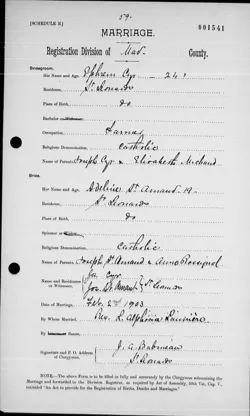 [SCHEDULE B.]
59.
001541
MARRIAGE.
Registration Division of Mad. County.
Bridegroom.
His Name and Age, Ephrem Cyr - 24
Residence, St Leonard
Place of Birth, do
Bachelor or
Occupation, Farmer
Religious Denomination, Catholic
Names of Parents, Joseph Cyr & Elizabeth Michaud
Bride.
Her Name and Age, Adeline St Amand 19 -
Residence, St Leonard
Place of Birth, do
Spinster or
Religious Denomination, Catholic
Names of Parents, Joseph St Amand & Anne Rossignol
Names and Residences of Witnesses, Cyr
Jos. St Amant } St Leonard
Date of Marriage, Feb. 2nd 1903
By Whom Married, Rev. L. Alphonse
By
Signature and P. O. Address of Clergyman, J. G. Babineau
St Leonard
NOTE.—The above Form is to be filled in fully and accurately by the Clergyman solemnizing the
Marriage and forwarded to the Division Registrar, as required by Act of Assembly, 50th Vic. Cap. V.,
entitled "An Act to provide for the Registration of Births, Deaths and Marriages."